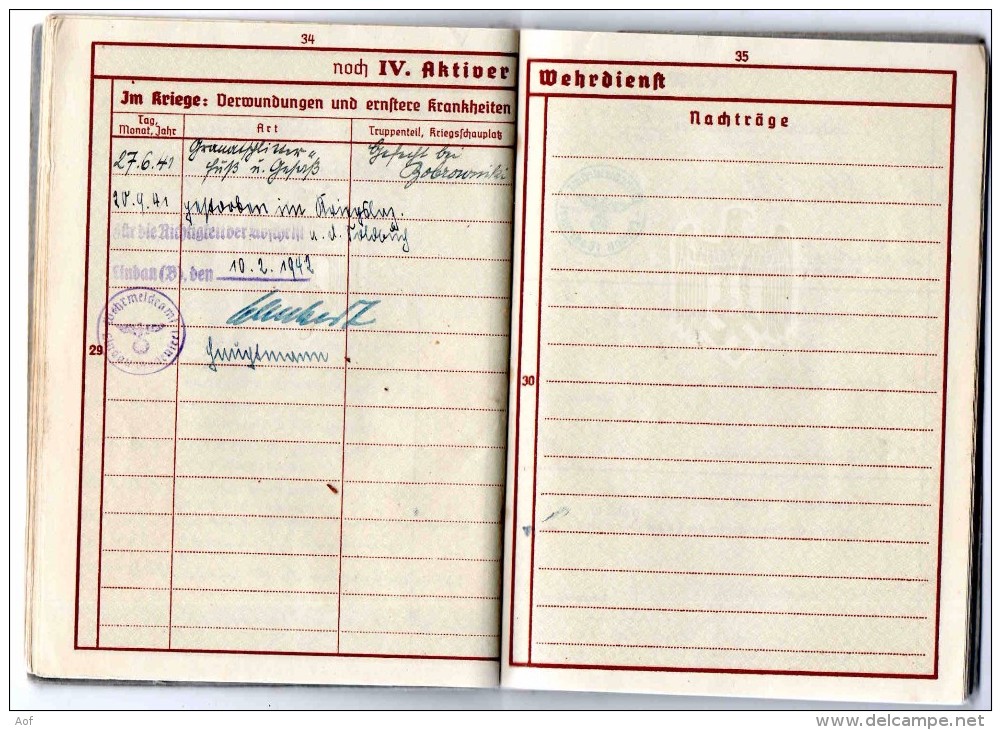 34
noch IV. Aktiver
Im Kriege: Verwundungen und ernstere Krankheiten
Tag, Monat, Jahr
Art
Truppenteil, Kriegsschauplatz
27.6.41
Granatsplitter-
Fuß u. Gesäß
Gefecht bei
Bobrowniki
20.9.41
gestorben im Kriegslaz.
für die Richtigkeit der Abschrift u. d. Soldbuch
Lindau (B), den 10.2.1942
Hauptmann
29
35
Wehrdienst
Nachträge
30
Aof
www.delcampe.net